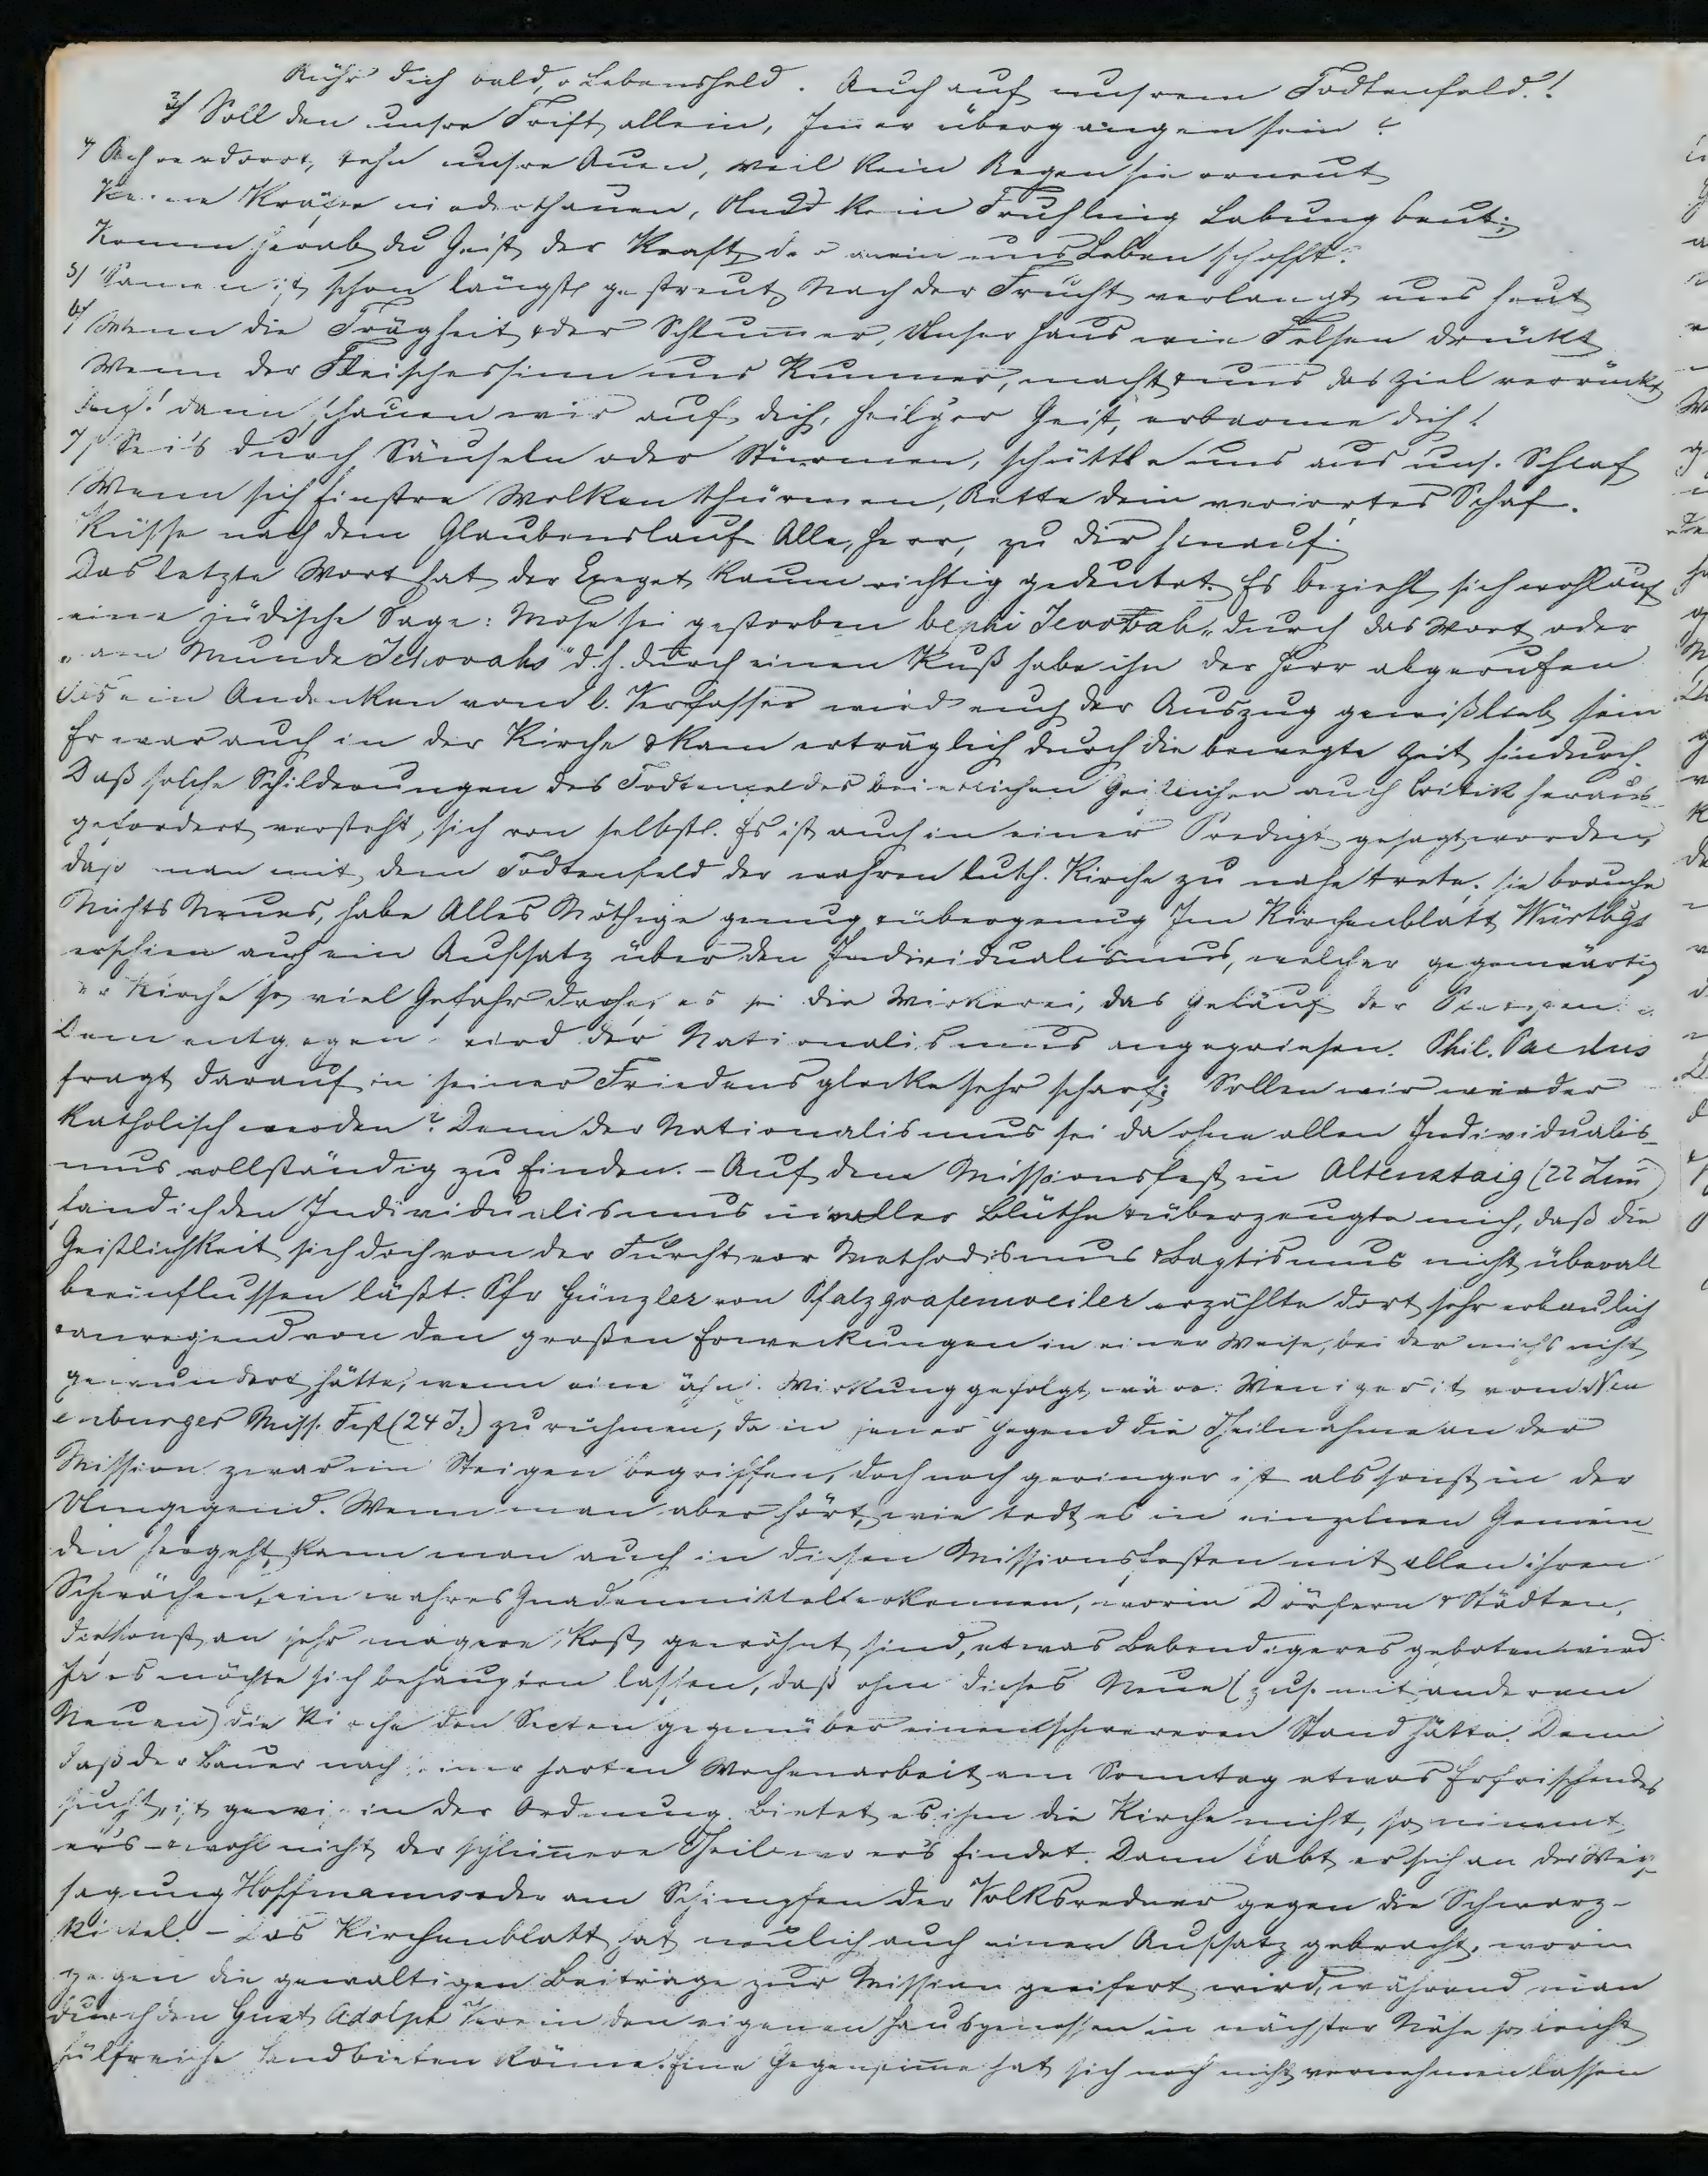 Rühr dich bald, o Lebensheld. Auch auf unsrem Todtenfeld!
3/ Soll den unsre Trift allein, Immer übergangen sein?
4/ Ach verdorrt stehn unsre Auen, weil kein Regen sie erneut
Keine Kräfte niederthauen, Und kein Frühling Labung beut;
Komm herab du Geist der Kraft der allein uns Leben schafft.
5/ Samen ist schon längst gestreut, Nach der Frucht verlangt uns heut
6/ Wenn die Trägheit & der Schlummer, Unser Haus wie Felsen drückt
Wenn der Fleischessinn uns Kummer, macht & uns das Ziel verrückt
dann schauen wir auf dich, heilger Geist, erbarme dich!
7/ Sei's durch Säuseln oder Stürmen, schüttle uns aus uns. Schlaf
Wenn sich finstre Wolken thürmen, Rette dein verirrtes Schaf.
Küsse nach dem Glaubenslauf Alle, Herr, zu dir hinauf!
Das letzte Wort hat der Exeget kaum richtig gedeutet. Es bezieht sich wohl auf
eine jüdische Sage: Mose sei gestorben bephi Jehovah „durch das Wort oder
„am Munde Jehovahs" d.h. durch einen Kuß habe ihn der Herr abgerufen
Als ein Andenken vom l. Verfasser wird euch der Auszug gewiß lieb sein
Er war auch in der Kirche & kam erträglich durch die bewegte Zeit hindurch.
Daß solche Schilderungen des Todtenfeldes bei etlichen Geistlichen auch Critik heraus-
gefordert versteht sich von selbst. Es ist auch in einer Predigt gesagt worden,
daß man mit dem Todtenfeld der wahren luth. Kirche zu nahe trete, sie brauche
Nichts Neues, habe Alles Nöthige genug & übergenug Im Kirchenblatt Würtbgs
erschien auch ein Aufsatz über den Individualismus, welcher gegenwärtig
der Kirche so viel Gefahr drohe, es sei die Wirkerei, das Geläuf der
Dem entgegen wird der Nationalismus angepriesen. Phil. Paulus
fragt darauf in seiner Friedensglocke sehr scharf: Sollen wir wieder
katholisch werden? Denn der Nationalismus sei da ohne allen Individualis-
mus vollständig zu finden. – Auf dem Missionsfest in Altenstaig (22 Juni)
fand ich den Individualismus in voller Blüthe & überzeugte mich, daß die
Geistlichkeit sich doch von der Furcht vor Methodismus & Baptismus nicht überall
beeinflussen läßt. Pfr Günzler von Pfalzgrafenweiler erzählte dort sehr erbaulich
& anregend von den großen Erweckungen in einer Weise, bei der michs nicht
gewundert hätte, wenn eine ähnl. Wirkung gefolgt wäre. Weniger ist vom Neu
enburger Miss. Fest (24 J.) zu rühmen, da in jener Gegend die Theilnahme an der
Mission zwar im Steigen begriffen, doch noch geringer ist als sonst in der
Umgegend. Wenn man aber hört, wie todt es in einzelnen Gemein-
den hergeht, kann man auch in diesen Missionsfesten mit allen ihren
Schwächen, ein wahres Gnadenmittel erkennen, worin Dörfern & Städten,
die sonst an sehr magere Kost gewöhnt sind, etwas Lebendigeres geboten wird
Ja es möchte sich behaupten lassen, daß ohne dieses Neue (zus. mit anderem
Neuen) die Kirche den Secten gegenüber einen schwereren Stand hätte. Denn
daß der Bauer nach seiner harten Wochenarbeit am Sonntag etwas Erfrischendes
sucht, ist gewiß in der Ordnung. Bietet es ihm die Kirche nicht, so nimmt
er's – & wohl nicht der schlimmere Theil – wo er's findet. Dann labt er sich an der Weis-
sagung Hoffmanns oder am Schimpfen der Volksredner gegen die Schwarz-
kittel. – Das Kirchenblatt hat neulich auch einen Aufsatz gebracht, worin
gegen die gewaltigen Beiträge zur Mission geeifert wird, während man
durch den Gust Adolph Verein den eigenen Hausgenossen in nächster Nähe so leicht
hülfreiche Hand bieten könne. Eine Gegenstimme hat sich noch nicht vernehmen lassen